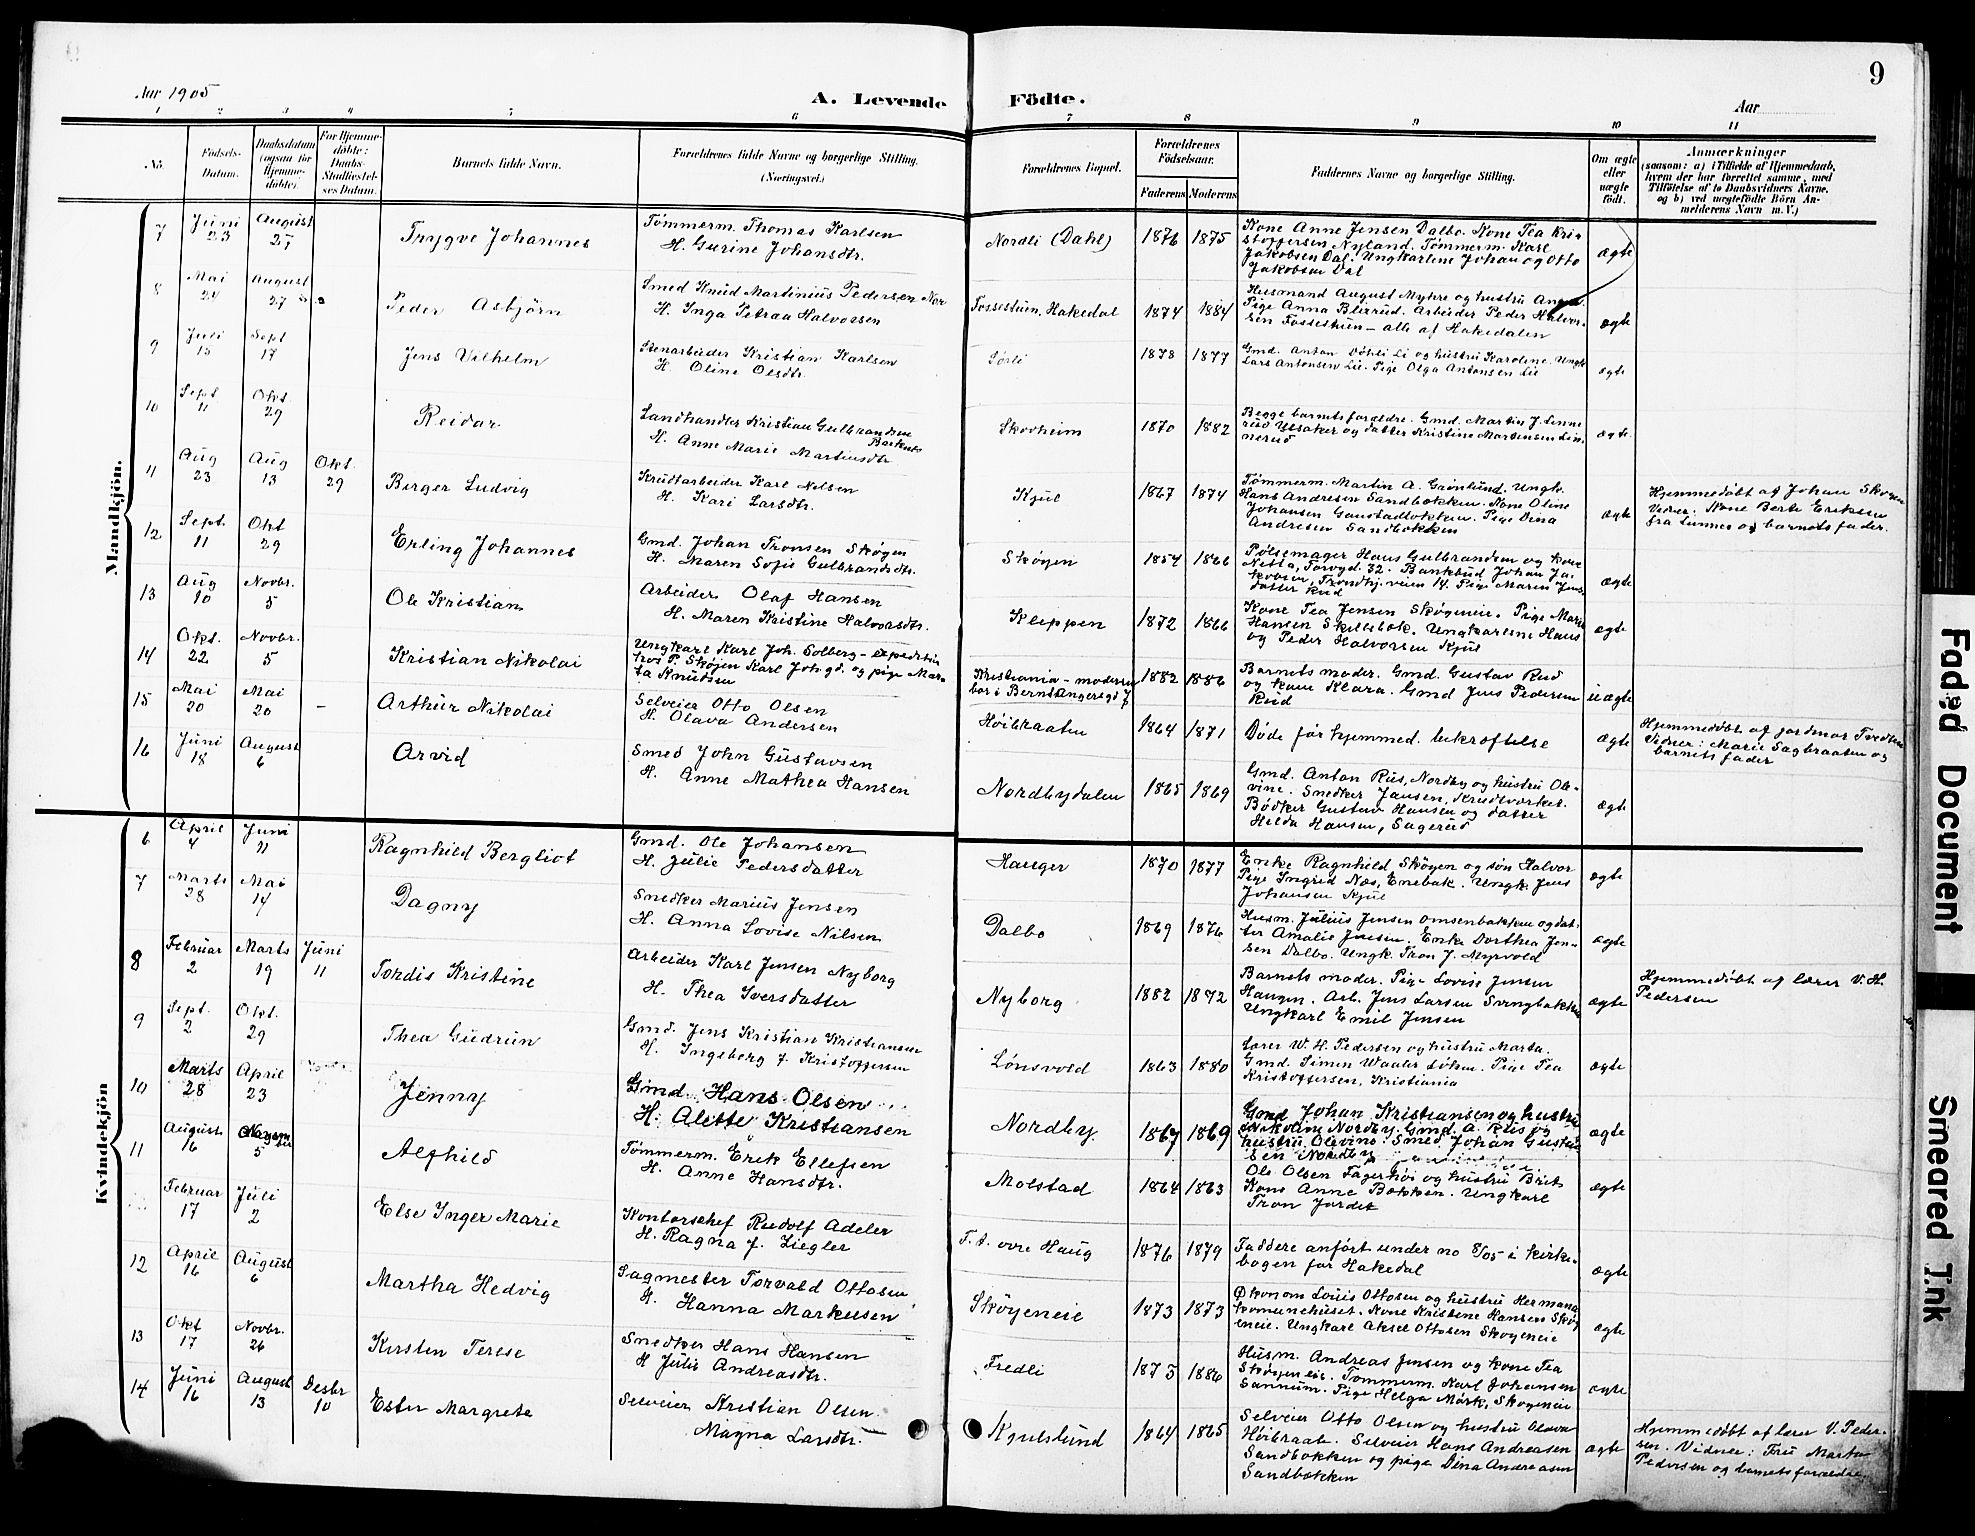 Aar 1905
A. Levende
Födte.
Aar
9
1 2 3 4 5 6 7 8 9 10 11
No.
Födsels-
Datum.
Daabsdatum
(ogsaa for
Hjemme-
döbte).
For Hjemme-
döbte:
Daabs-
Stadfæstel-
ses Datum.
Barnets fulde Navn.
Forældrenes fulde Navne og borgerlige Stilling.
(Næringsvei.)
Forældrenes Bopæl.
Forældrenes
Födselsaar.
Faderens Moderens
Faddernes Navne og borgerlige Stilling.
Om ægte
eller
uægte
födt.
Anmærkninger
(saasom: a) i Tilfælde af Hjemmedaab,
hvem der har forrettet samme, med
Tilföielse af to Daabsvidners Navne,
og b) ved uægtefödte Börn An-
melderens Navn m. V.)
Mandkjön.
7
Juni
23
August
27
Trygve Johannes
Tømmerm. Thomas Karlsen
H. Gurine Johansdtr.
Nordli (Dahl)
1876 1875
Kone Anne Jensen Dalbo. Kone Tea Kri-
stoffersen Nyland. Tømmerm. Karl
Jakobsen Dal. Ungkarlene Johan og Otto
Jakobsen Dal
ægte
8
Mai
24
August
27
Peder Asbjörn
Smed Knud Martinius Pedersen Nor
H. Inga Petraa Halvorsen
Fossestuen, Hakedal
1874 1884
Husmand August Myhre og hustru
Pige Anna Blixrud. Arbeider Peder Halvor-
sen Fossestuen – alle af Hakedalen
ægte
9
Juli
15
Sept
17
Jens Vilhelm
Stenarbeider Kristian Karlsen
H. Oline Olsdtr.
Sørli
1878 1877
Gmd. Anton Döhli Li og hustru Karoline. Ungk.
Lars Antonsen Lie. Pige Olga Antonsen Lie
ægte
10
Sept
11
Okt
29
Reidar
Landhandler Kristian Gulbrandsen
H. Anne Marie Martinsdtr
Skovheim
1870 1882
Begge barnets forældre. Gmd. Martin J. Linne
rud Ussaker og datter Kristine Martinsen Lin-
nerud
ægte.
11
Aug
23
Aug
13
Okt.
29
Birger Ludvig
Krudtarbeider Karl Nilsen
H. Kari Larsdtr.
Kjul
1867 1874
Tømmerm. Martin A. Grønlund. Ungk.
Hans Andresen Sandbækken. Kone Oline
Johansen Gaustadbækken. Pige Dina
Andresen Sandbækken
ægte
Hjemmedøbt af Johan Skøyen
Vidner: Kone Berte Eriksen
fra Linnes og barnets fader.
12
Sept.
11
Okt
29
Erling Johannes
Gmd. Johan Tronsen Skøyen
H. Maren Sofie Gulbrandsdtr.
Skøyen
1854 1866
Pølsemager Hans Gulbrandsen og kone
Netta, Torvgd. 32. Bankbud Johan Ja-
kobsen, Trondhj.veien 14. Pige Maren Jens
datter Rud
ægte
13
Aug
10
Novbr.
5
Ole Kristian
Arbeider Olaf Hansen
H. Maren Kristine Halvorsdtr.
Kleppen
1872 1866
Kone Tea Jensen Skøyeneie. Pige Marie
Hansen Skillebæk. Ungkarlene Hans
og Peder Halvorsen Kjul
ægte
14
Okt.
22
Novbr.
5
Kristian Nikolai
Ungkarl Karl Joh. Solberg – expeditør
hos P. Skøjen Karl Joh.gd. og pige Mar-
ta Knudsen
Kristiania – moderen
bor i Bernt Ankersgd 7
1882 1886
Barnets moder. Gmd. Gustav Rud
og kone Klara. Gmd Jens Pedersen
Rud
uægte
15
Mai
20
Mai
20
–
Arthur Nikolai
Selveier Otto Olsen
H. Olava Andersen
Høibraaten
1864 1871
Døde før hjemmed. bekræftelse
ægte
Hjemmedøbt af jordmor Tvedten
Vidner: Marie Sagbraaten og
barnets fader
16
Juni
18
August
6
Arvid
Smed John Gustavsen
H. Anne Mathea Hansen
Nordbydalen
1865 1869
Gmd. Anton Rus, Nordby og hustru Ol-
vine. Snedker Jansen, Krudtværket.
Bødker Gustav Hansen og datter
Hilda Hansen, Sagerud
ægte
Kvindekjön
6
April
4
Juni
11
Ragnhild Bergliot
Gmd. Ole Johansen
H. Julie Pedersdatter
Hauger
1870 1877
Enke Ragnhild Skøyen og søn Halvor
Pige Ingrid Næs, Enebak. Ungk. Jens
Johansen Kjul
ægte
7
Marts
28
Mai
14
Dagny
Snedker Marius Jensen
H. Anna Lovise Nilsen
Dalbo
1869 1876
Husm. Julius Jensen Omsenbakken og dat-
ter Amalie Jensen. Enke Dorthea Jen-
sen Dalbo. Ungk. Tron J. Myrvold
ægte
8
Februar
2
Marts
19
Juni
11
Tordis Kristine
Arbeider Karl Jensen Nyborg
H. Thea Iversdatter
Nyborg
1882 1872
Barnets moder. Pige Lovise Jensen
Haugen. Arb. Jens Larsen Svingbakken
Ungkarl Emil Jensen
ægte
Hjemmedøbt af lærer V. H.
Pedersen
9
Sept.
2
Okt.
29
Thea Gudrun
Gmd. Jens Kristian Kristiansen
H. Ingeborg f. Kristoffersen
Lønsvold
1863 1880
Lærer W. H. Pedersen og hustru Marta.
Gmd. Simen Waaler Løken. Pige Tea
Kristoffersen, Kristiania
ægte
10
Marts
28
April
23
Jenny
Gmd. Hans Olsen
H. Alette Kristiansen
Nordby.
1867 1869
Gmd Johan Kristiansen og hustru
Nikoline Nordby. Gmd. A. Rus og
hustru Olevine. Smed Johan Gustav-
sen Nordby
ægte
11
August
16
5
Alfhild
Tømmerm. Erik Ellefsen
H. Anne Hansdtr.
Molstad
1864 1863
Ole Olsen Fagerhøi og hustru Brit
Kone Anne Bækken. Ungkarl
Tron Jordet
ægte
Februar
17
Juli
2
Else Inger Marie
Kontorschef Rudolf Adeler
H. Ragna f. Ziegler
F. t. øvre Haug
1876 1879
Faddere anført under no 8/05 i kirke-
bogen for Hakedal
ægte
12
April
16
August
6
Martha Hedvig
Sagmester Torvald Ottosen
H. Hanna Markusen
Skøyeneie
1873 1873
Økonom Louis Ottosen og hustru Hermana
komunehuset. Kone Kristine Hansen Skøy
eneie. Ungkarl Aksel Ottosen Skøyeneie
ægte
13
Okt
17
Novbr.
26
Kirsten Terese
Snedker Hans Hansen
H Julie Andreasdtr.
Fredli
1875 1886
Husm. Andreas Jensen og kone Tea
Skøyeneie. Tømmerm. Karl Johansen
Sannum. Pige Helga Mørk, Skøyeneie
ægte
14
Juni
16
August
13
Desbr
10
Ester Margrete
Selveier Kristian Olsen
Magna Larsdtr.
Kjulslund
1864 1865
Selveier Otto Olsen og hustru Olava
Høibraat. Selveier Hans Andreasen
Sandbækken og pige Dina Andreasen
Sandbækken
ægte
Hjemmedøbt af lærer V. Peder-
sen. Vidner: Fru Marta
Pedersen og barnets forældre
Faded Document
Smeared Ink